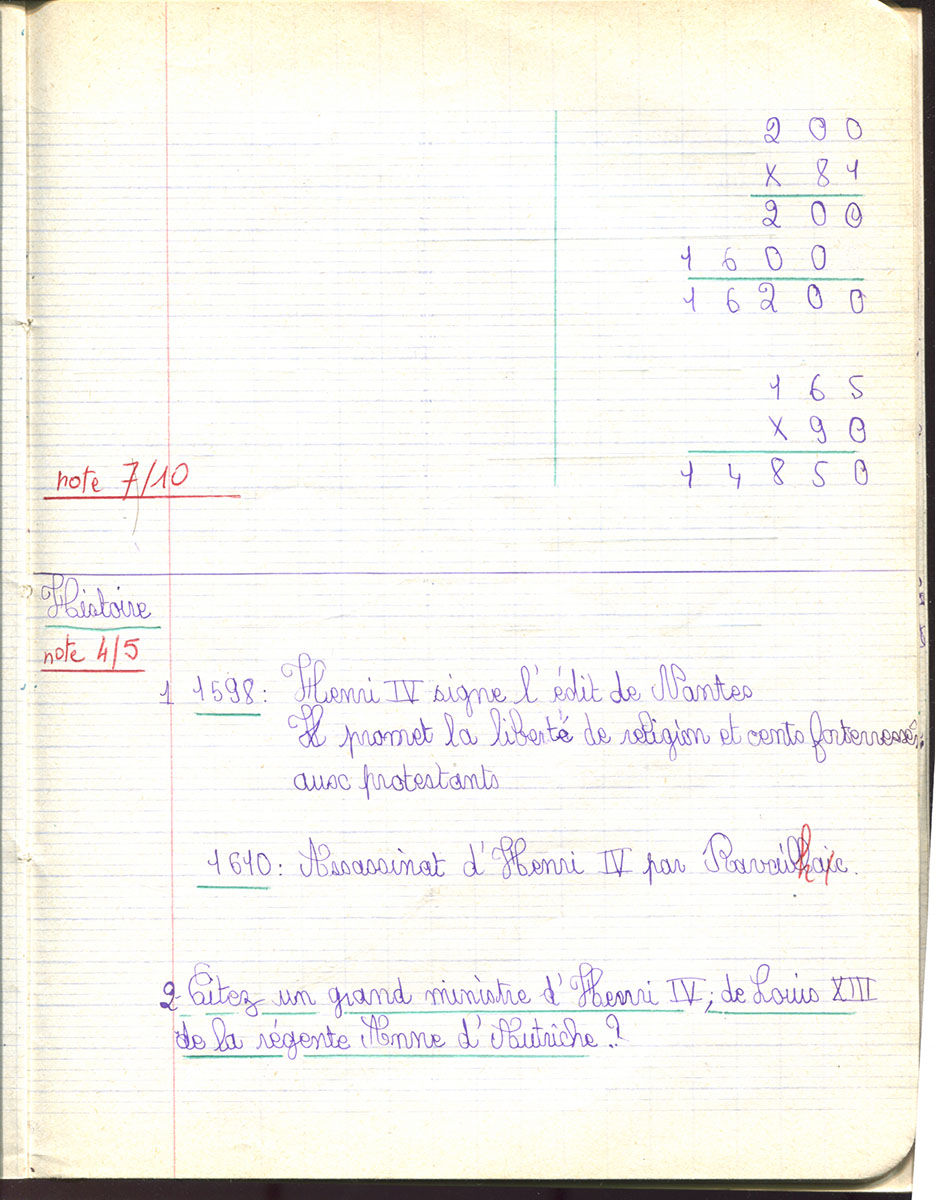 200
x 81
200
1600
16200
165
x 90
14850
note 7/10
Histoire
note 4/5
1 1598: Henri IV signe l'édit de Nantes
Il promet la liberté de religion et cents forteresses
aux protestants
1610: Assassinat d'Henri IV par Ravaillac.
2- Citez un grand ministre d'Henri IV; de Louis XIII
de la régente Anne d'Autriche?